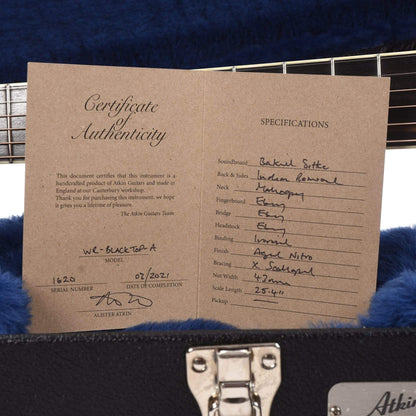 Certificate
of
Authenticity
This document certifies that this instrument is a
handcrafted product of Atkin Guitars and made in
England at our Canterbury workshop.
Thank you for purchasing this instrument, we hope
it gives you a lifetime of pleasure.
The Atkin Guitars Team
MODEL
1620 02/2021
SERIAL NUMBER DATE OF COMPLETION
ALISTER ATKIN
SPECIFICATIONS
Soundboard Baked Sitka
Back & Sides Indian Rosewood
Neck Mahogany
Fingerboard Ebony
Bridge Ebony
Headstock Ebony
Binding Ivoroid
Finish Aged Nitro
Bracing X Scalloped
Nut Width 42mm
Scale Length 25.4"
Pickup
Atkin